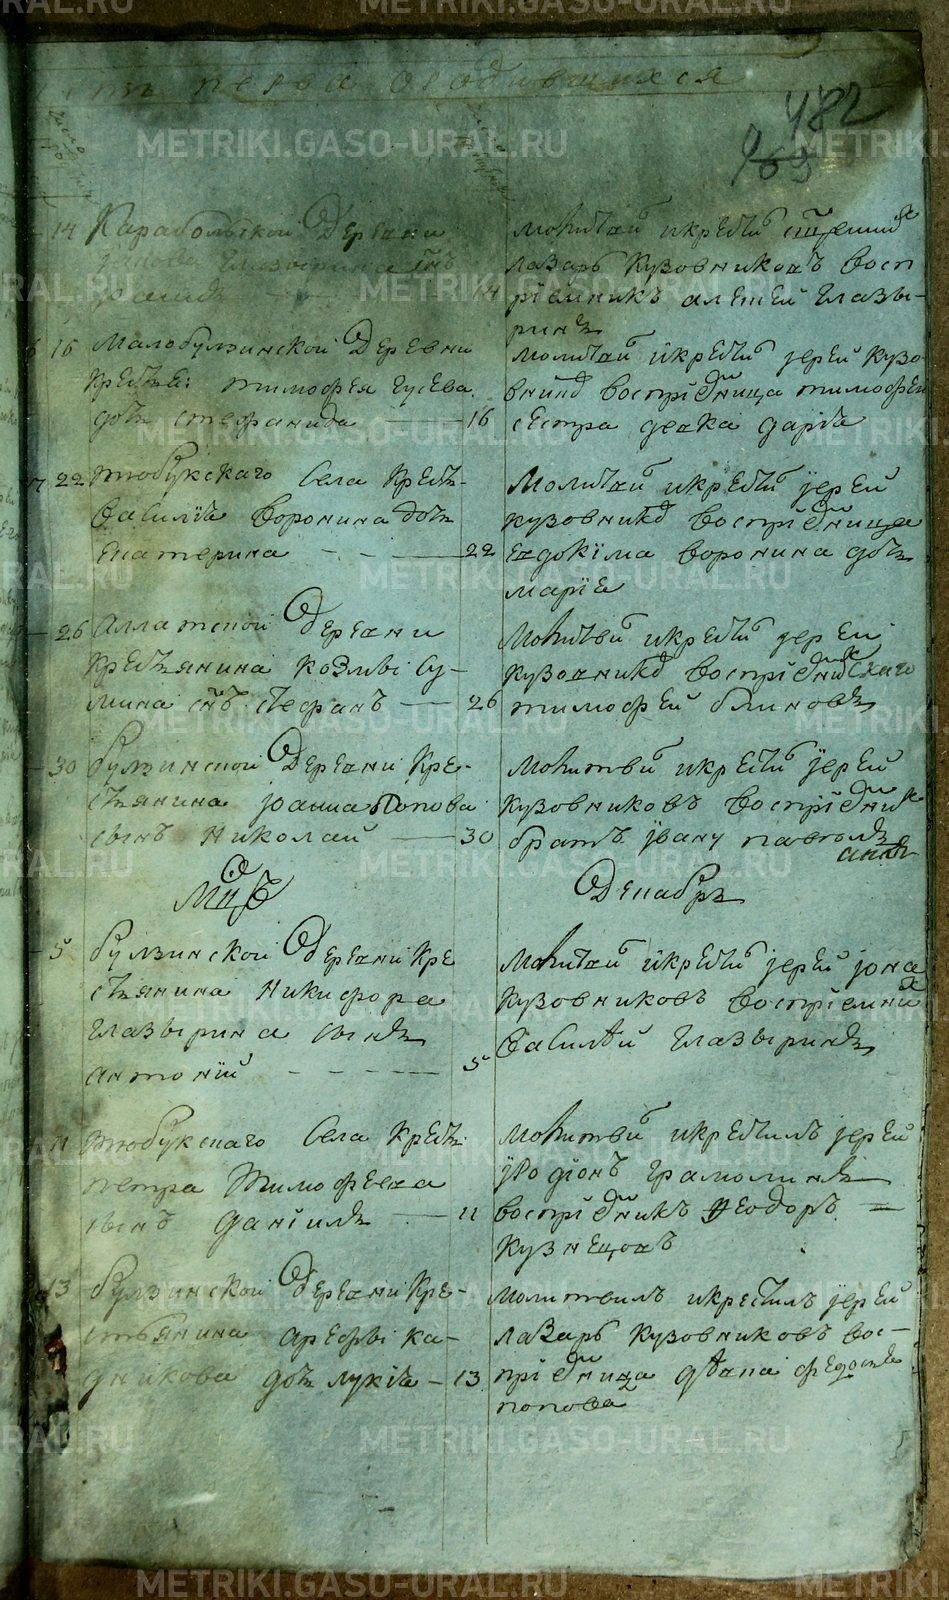 сть перва о родившихся
482
14 Карабольской Деревни
Глазырина снъ
14
молитвй икрести сщенник
лазарь кузовниковъ восп
ріемникъ алеѯей глазы-
ринъ
16 Малобулзинской Деревни
крестья: тимофея гусева
дочь стефанида 16
молитвй икрести іерей кузо
вникд воспріемница тимофея
сестра девка даріа
22 тюбукскаго Села кресть-
василіа воронина дочь
екатерина 22
Молитвй икрести іерей
кузовникд воспріемница
евдокима воронина дочь
маріа
26 Аллатской Деревни
крестьянина козмы су-
мина снъ стефанъ 26
молитвй икрести іерей
кузовникд воспріемник
тимофей блиновъ
30 булзинской Деревни кре-
стьянина іоанна Попова
сынъ николай 30
молитвй икрести іерей
кузовниковъ воспріемник
братъ ивану павелъ
Мцъ Декабрь
5 булзинской Деревни кре
стьянина Никифора
глазырина сынъ
антоній 5
молитвй икрести іерей іона
кузовниковъ воспріемник
василей глазыринъ
11 тюбукскаго Села кресть
петра Тимофеева
сынъ даніилъ 11
молитвй икрестилъ іерей
іродіонъ грамолинъ
воспріемникъ Феодоръ
кузнецовъ
13 булзинской Деревни кре-
стьянина арефы ка-
дникова дочь лукіа 13
молитвилъ икрестилъ іерей
лазарь кузовниковъ вос-
пріемница девка федосья
попова
METRIKI.GASO-URAL.RU